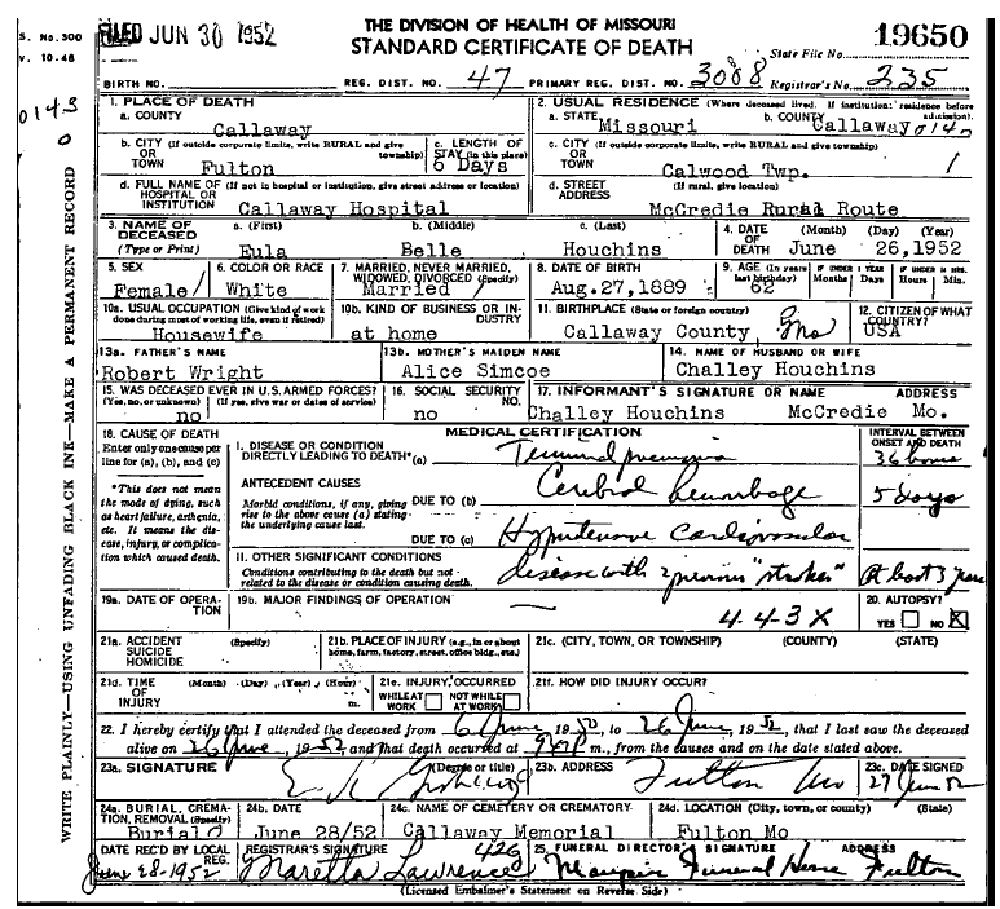 S. No. 300
V. 10-48
FILED JUN 30 1952
THE DIVISION OF HEALTH OF MISSOURI
STANDARD CERTIFICATE OF DEATH
19650
State File No.
BIRTH NO. REG. DIST. NO. 47 PRIMARY REG. DIST. NO. 3088 Registrar's No. 235
0143
0
WRITE PLAINLY—USING UNFADING BLACK INK—MAKE A PERMANENT RECORD
1. PLACE OF DEATH
a. COUNTY Callaway
2. USUAL RESIDENCE (Where deceased lived. If institution: residence before admission).
a. STATE Missouri b. COUNTY Callaway 0140
b. CITY (If outside corporate limits, write RURAL and give township) OR TOWN Fulton
c. LENGTH OF STAY (in this place) 6 Days
c. CITY (If outside corporate limits, write RURAL and give township) OR TOWN Calwood Twp. 1
d. FULL NAME OF (If not in hospital or institution, give street address or location) HOSPITAL OR INSTITUTION Callaway Hospital
d. STREET ADDRESS (If rural, give location) McCredie Rural Route
3. NAME OF DECEASED (Type or Print) a. (First) Eula b. (Middle) Belle c. (Last) Houchins
4. DATE OF DEATH (Month) (Day) (Year) June 26,1952
5. SEX Female 6. COLOR OR RACE White 7. MARRIED, NEVER MARRIED, WIDOWED, DIVORCED (Specify) Married 8. DATE OF BIRTH Aug.27,1889 9. AGE (In years last birthday) 62 IF UNDER 1 YEAR Months Days IF UNDER 24 HRS. Hours Min.
10a. USUAL OCCUPATION (Give kind of work done during most of working life, even if retired) Housewife
10b. KIND OF BUSINESS OR INDUSTRY at home
11. BIRTHPLACE (State or foreign country) Callaway County Mo
12. CITIZEN OF WHAT COUNTRY? USA
13a. FATHER'S NAME Robert Wright
13b. MOTHER'S MAIDEN NAME Alice Simcoe
14. NAME OF HUSBAND OR WIFE Challey Houchins
15. WAS DECEASED EVER IN U.S. ARMED FORCES? (Yes, no, or unknown) (If yes, give war or dates of service) no
16. SOCIAL SECURITY NO. no
17. INFORMANT'S SIGNATURE OR NAME ADDRESS Challey Houchins McCredie Mo.
18. CAUSE OF DEATH
Enter only one cause per line for (a), (b), and (c)
*This does not mean the mode of dying, such as heart failure, asthenia, etc. It means the disease, injury, or complication which caused death.
MEDICAL CERTIFICATION
INTERVAL BETWEEN ONSET AND DEATH
I. DISEASE OR CONDITION DIRECTLY LEADING TO DEATH* (a) Terminal pneumonia 36 hours
ANTECEDENT CAUSES
Morbid conditions, if any, giving rise to the above cause (a) stating the underlying cause last.
DUE TO (b) Cerebral hemorrhage 5 days
DUE TO (c) Hypertensive cardiovascular
II. OTHER SIGNIFICANT CONDITIONS
Conditions contributing to the death but not related to the disease or condition causing death.
disease with 2 previous "strokes" At least 3 years
19a. DATE OF OPERATION 19b. MAJOR FINDINGS OF OPERATION — 443X
20. AUTOPSY? YES NO X
21a. ACCIDENT SUICIDE HOMICIDE (Specify)
21b. PLACE OF INJURY (e.g., in or about home, farm, factory, street, office bldg., etc.)
21c. (CITY, TOWN, OR TOWNSHIP) (COUNTY) (STATE)
21d. TIME OF INJURY (Month) (Day) (Year) (Hour) m.
21e. INJURY OCCURRED WHILE AT WORK NOT WHILE AT WORK
21f. HOW DID INJURY OCCUR?
22. I hereby certify that I attended the deceased from 6 June, 1950, to 26 June, 1952, that I last saw the deceased
alive on 26 June, 1952 and that death occurred at m., from the causes and on the date stated above.
23a. SIGNATURE (Degree or title)
23b. ADDRESS Fulton Mo
23c. DATE SIGNED 27 June 52
24a. BURIAL, CREMATION, REMOVAL (Specify) Burial
24b. DATE June 28/52
24c. NAME OF CEMETERY OR CREMATORY Callaway Memorial
24d. LOCATION (City, town, or county) (State) Fulton Mo
DATE REC'D BY LOCAL REG. June 28-1952
REGISTRAR'S SIGNATURE 426 Maretta Lawrence
25. FUNERAL DIRECTOR'S SIGNATURE ADDRESS Maupin Funeral Home Fulton
(Licensed Embalmer's Statement on Reverse Side)